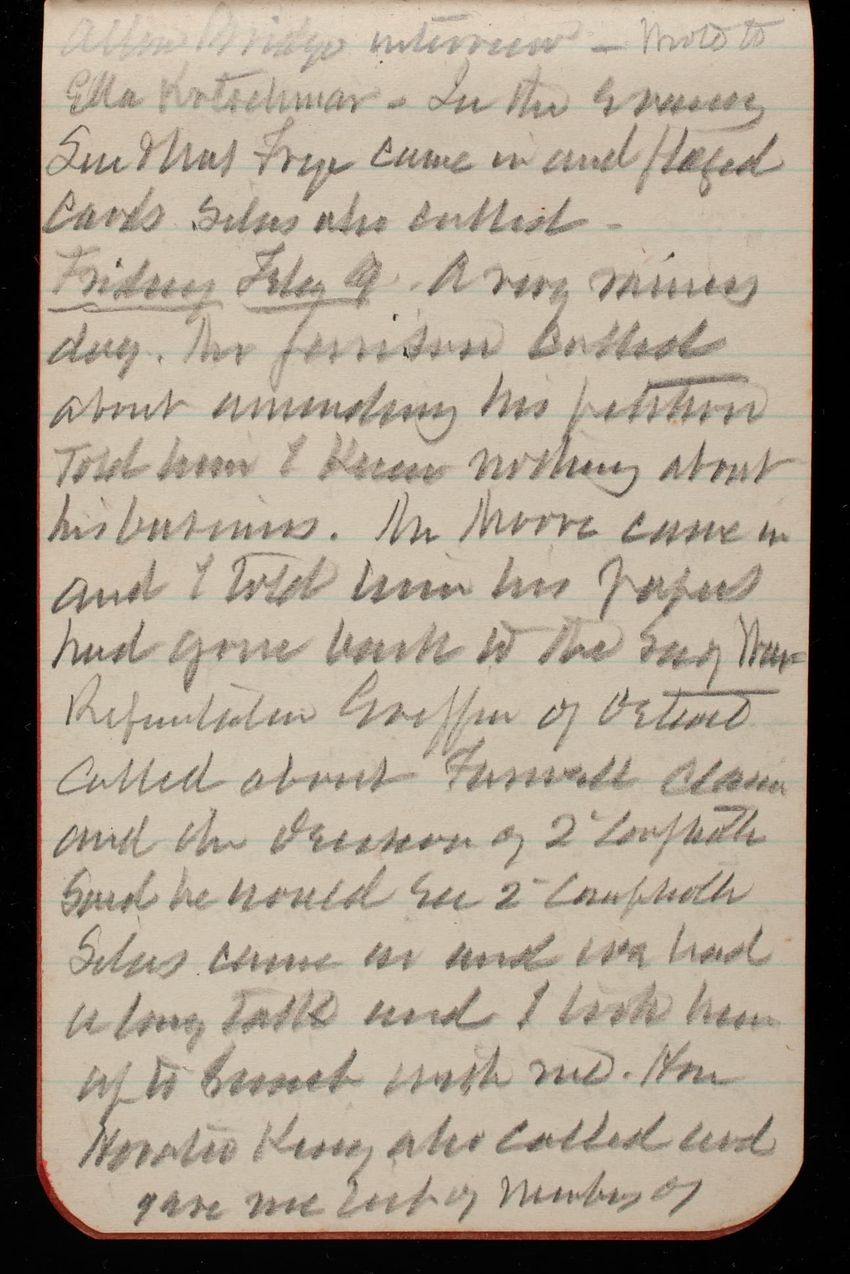 Allen Bridge interview - Wrote to
Ella Kotschmar - In the Evening
Sue Frye came in and played
Cards Silas also called -
Friday Feby 9. A very rainy
day. Mr Jerrison Called
about amending his petition
Told him I Knew nothing about
his business. Mr Moore came in
and I Told him his papers
had gone back to the Secy War
of Detroit
Called about Farwell Claim
and the Decision of 2d Comptrolle
Said he would See 2d Comptrolle
Silas came in and we had
a long Talk and I took him
up to Lunch with me. Hon
Horatio King also called and
gave me list of Members of